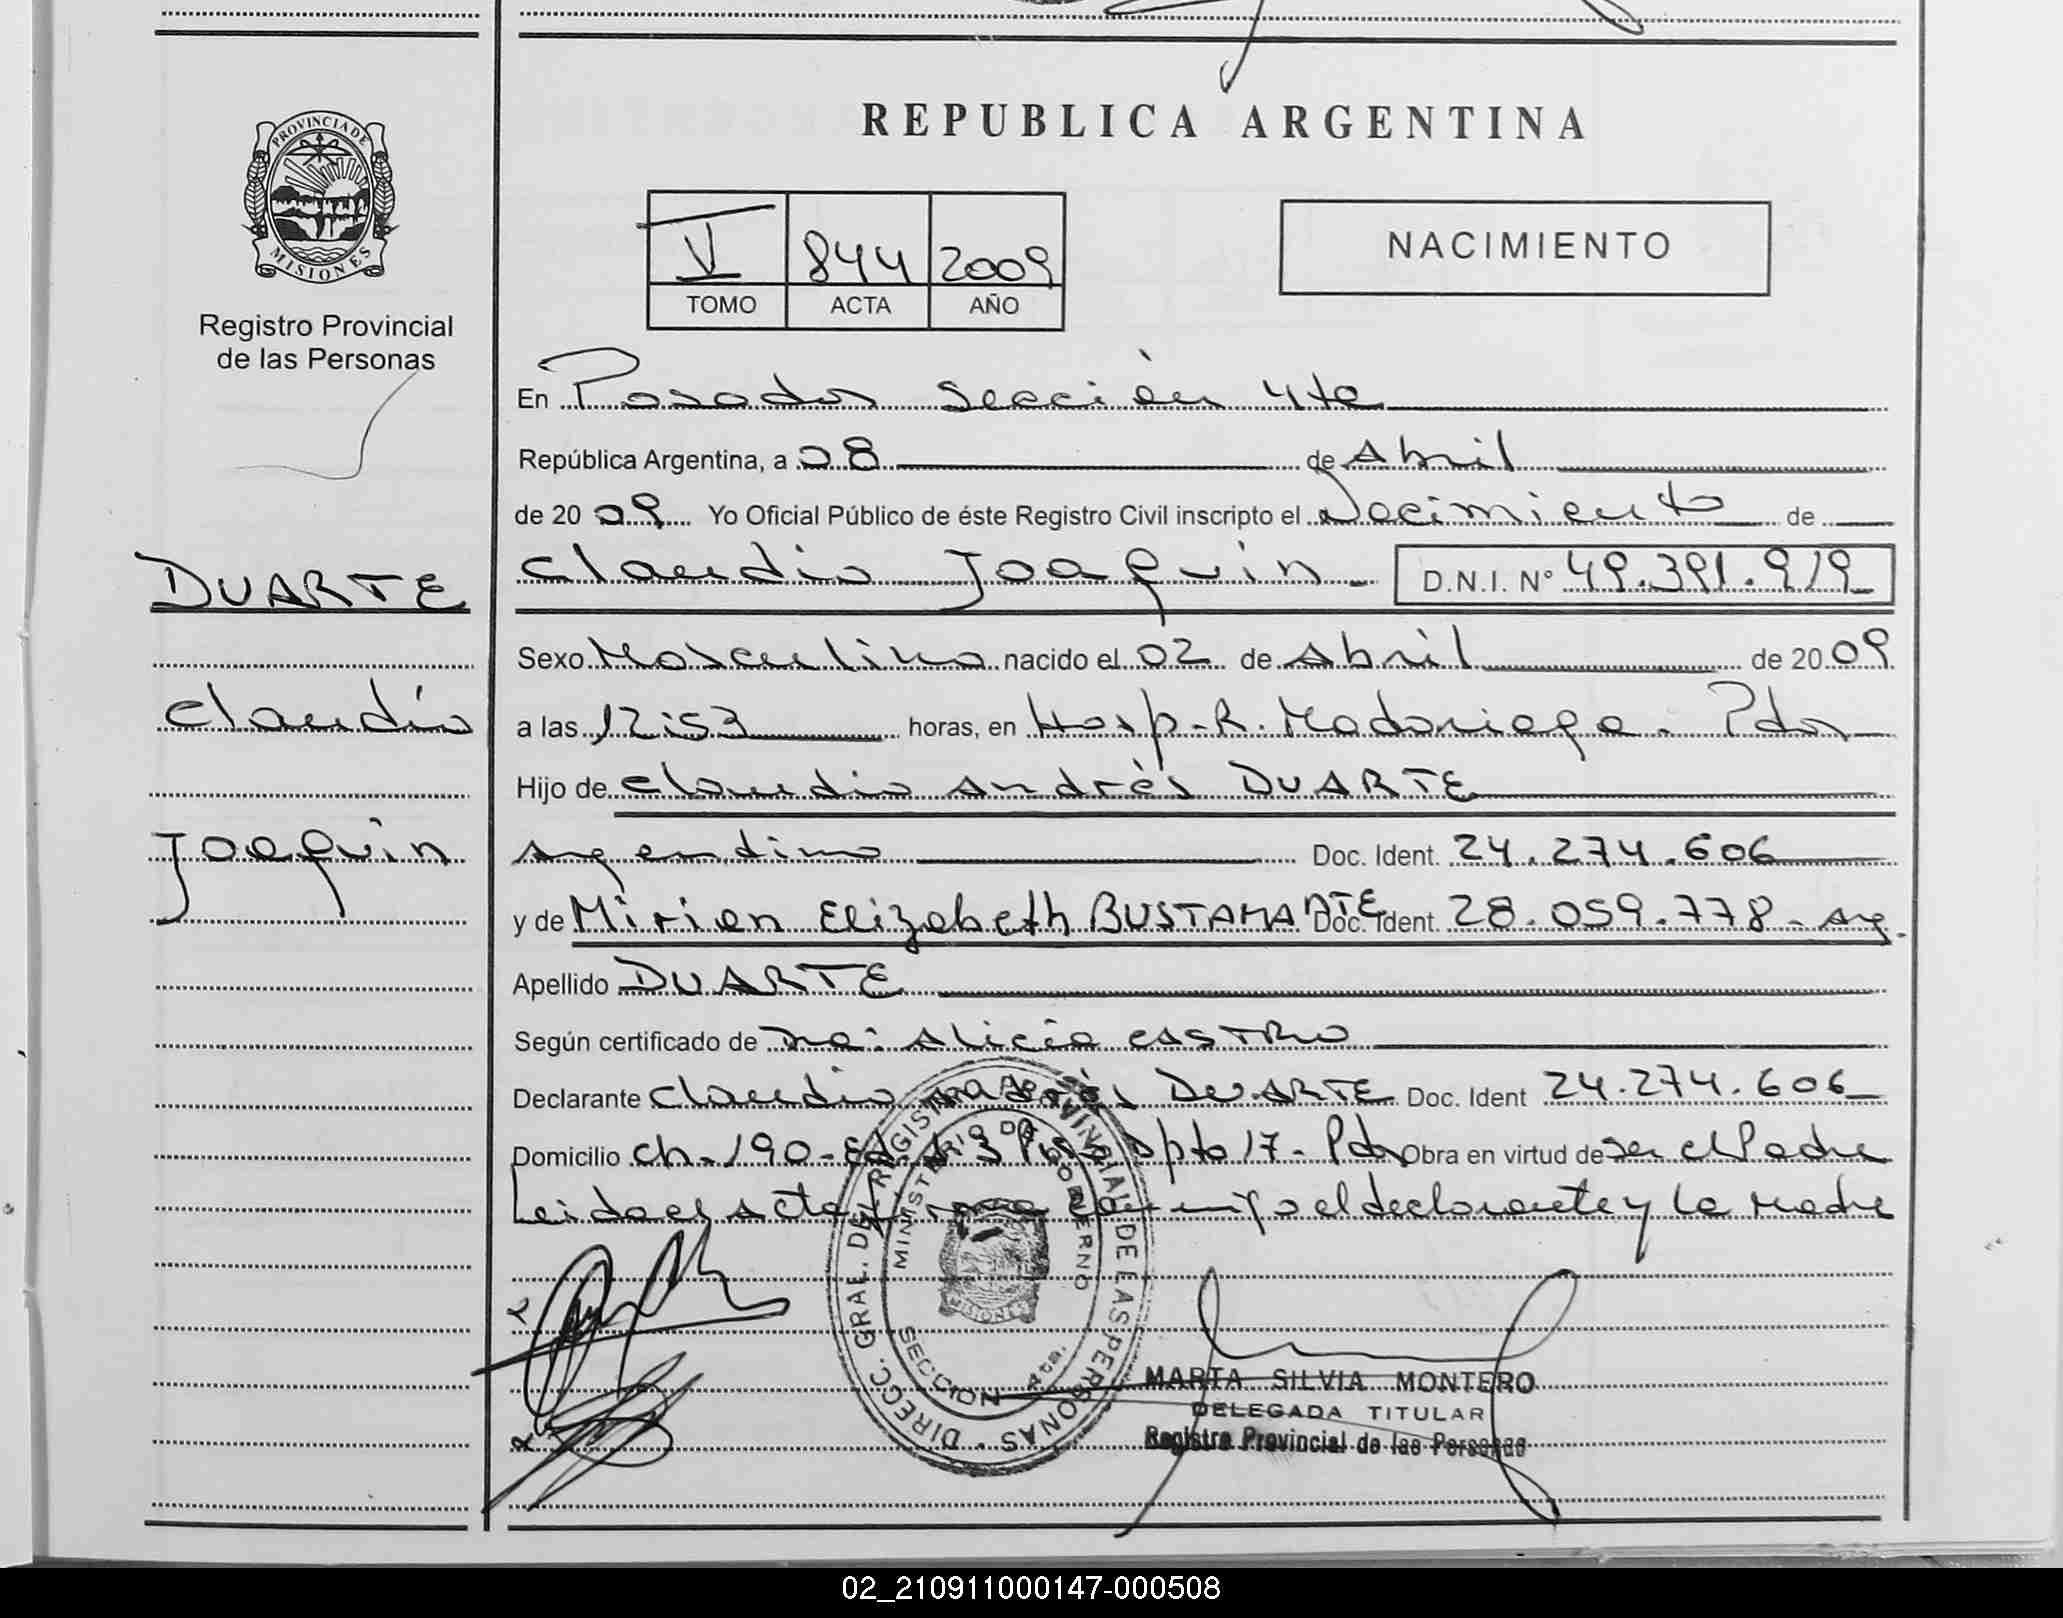 REPUBLICA ARGENTINA
PROVINCIA DE
MISIONES
Registro Provincial
de las Personas
V 844 2009
TOMO ACTA AÑO
NACIMIENTO
En Posadas Sección 4ta
República Argentina, a 08 de Abril
de 2009 Yo Oficial Público de éste Registro Civil inscripto el Nacimiento de
Claudio Joaquín D.N.I. Nº 49.391.919
DUARTE
Claudio
Joaquin
Sexo Masculino nacido el 02 de Abril de 2009
a las 12:53 horas, en Hosp. R. Madariaga. Pdas
Hijo de Claudio Andrés DUARTE
Argentino Doc. Ident. 24.274.606
y de Mirian Elizabeth BUSTAMANTE Doc. Ident. 28.059.778 - Arg.
Apellido DUARTE
Según certificado de Dra: Alicia CASTRO
Declarante Claudio Andrés DUARTE Doc. Ident 24.274.606
Domicilio ch. 190 - Ed. 3 Piso Dpto 17 - Pdas Obra en virtud de Ser el Padre
Leida el Acta firma conmigo el declarante y la Madre
DIRECC. GRAL. DEL REGISTRO PROVINCIAL DE LAS PERSONAS
MINISTERIO DE GOBIERNO
MISIONES
SECCION 4ta.
MARTA SILVIA MONTERO
DELEGADA TITULAR
Registro Provincial de las Personas
02_210911000147-000508